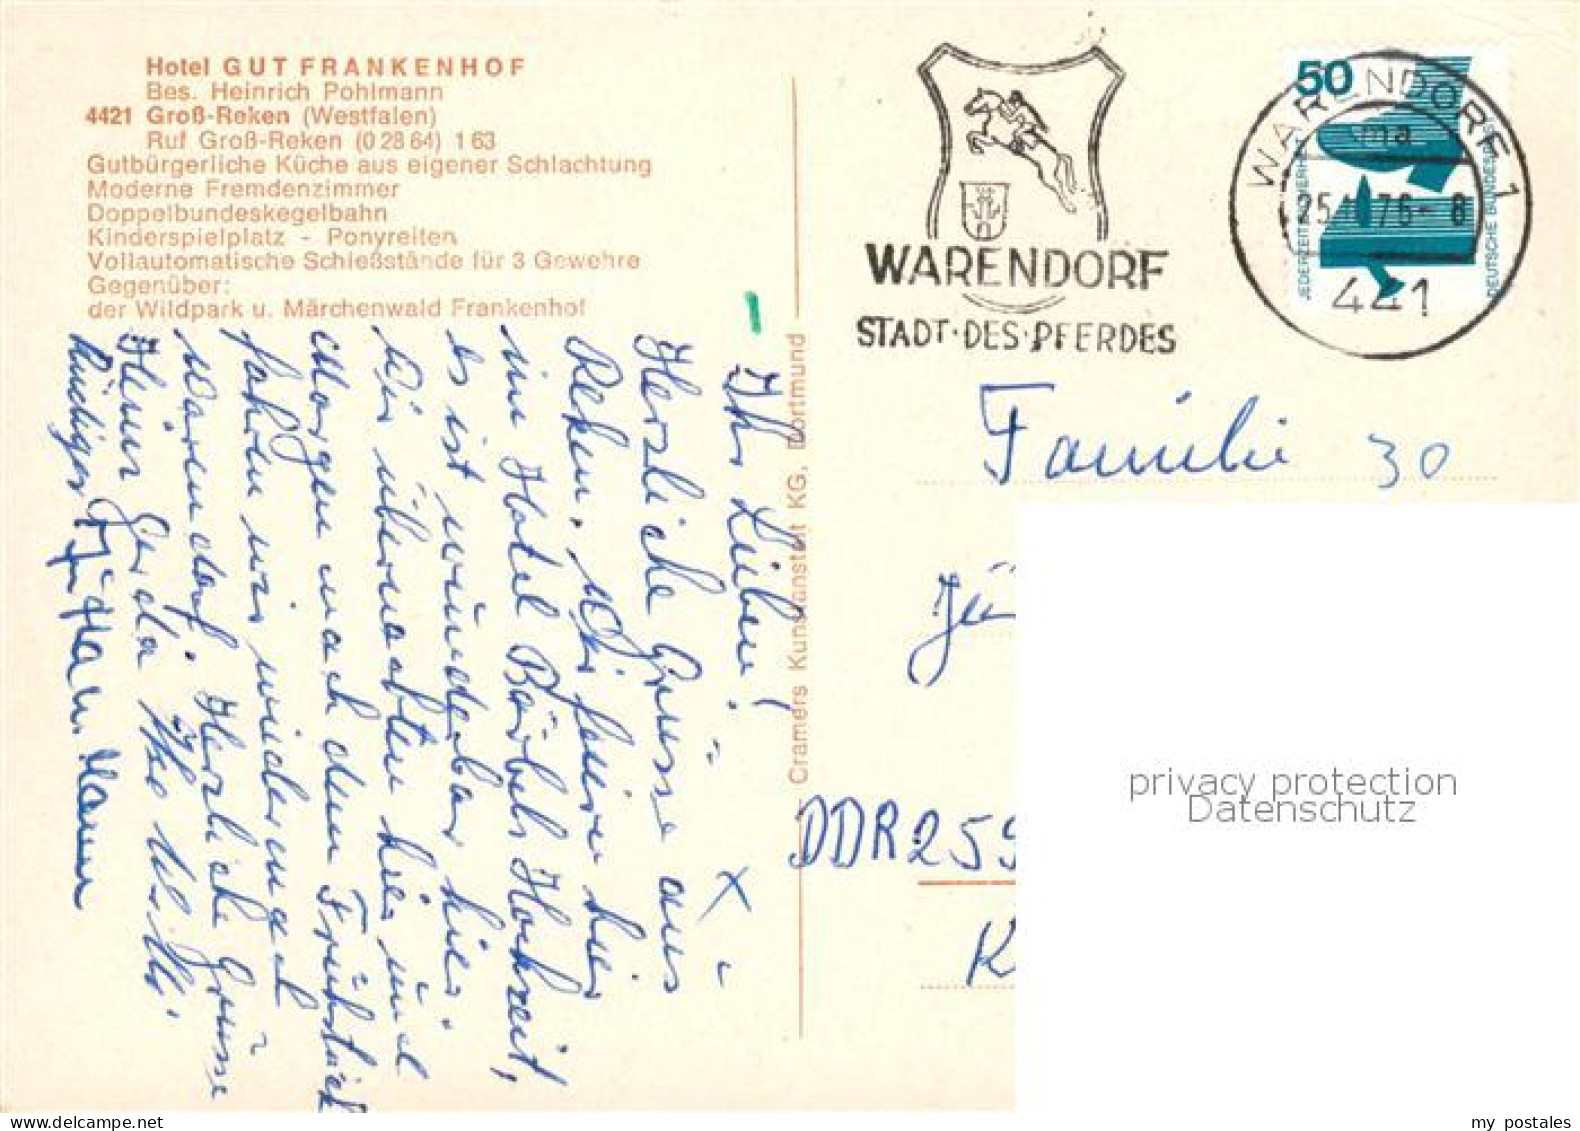 Hotel GUT FRANKENHOF
Bes. Heinrich Pohlmann
4421 Groß-Reken (Westfalen)
Ruf Groß-Reken (0 28 64) 1 63
Gutbürgerliche Küche aus eigener Schlachtung
Moderne Fremdenzimmer
Doppelbundeskegelbahn
Kinderspielplatz - Ponyreiten
Vollautomatische Schießstände für 3 Gewehre
Gegenüber:
der Wildpark u. Märchenwald Frankenhof
Ihr Lieben!
Herzliche Grüsse aus
Reken. Wir feiern hier
im Hotel Bärbels Hochzeit,
es ist wunderbar hier.
Wir übernachten hier und
Morgen nach dem Frühstück
fahren wir wieder nach
Warendorf. Herzliche Grüsse
Heinr Gerda Ilse Willi
Rüdiger
Cramers Kunstanstalt KG, Dortmund
WARENDORF
STADT·DES·PFERDES
50
JEDERZEIT SICHERHEIT
DEUTSCHE BUNDESPOST
WARENDORF 1
ma
76-8
441
Familie 30
Jü
DDR 259
K
privacy protection
Datenschutz
my postales